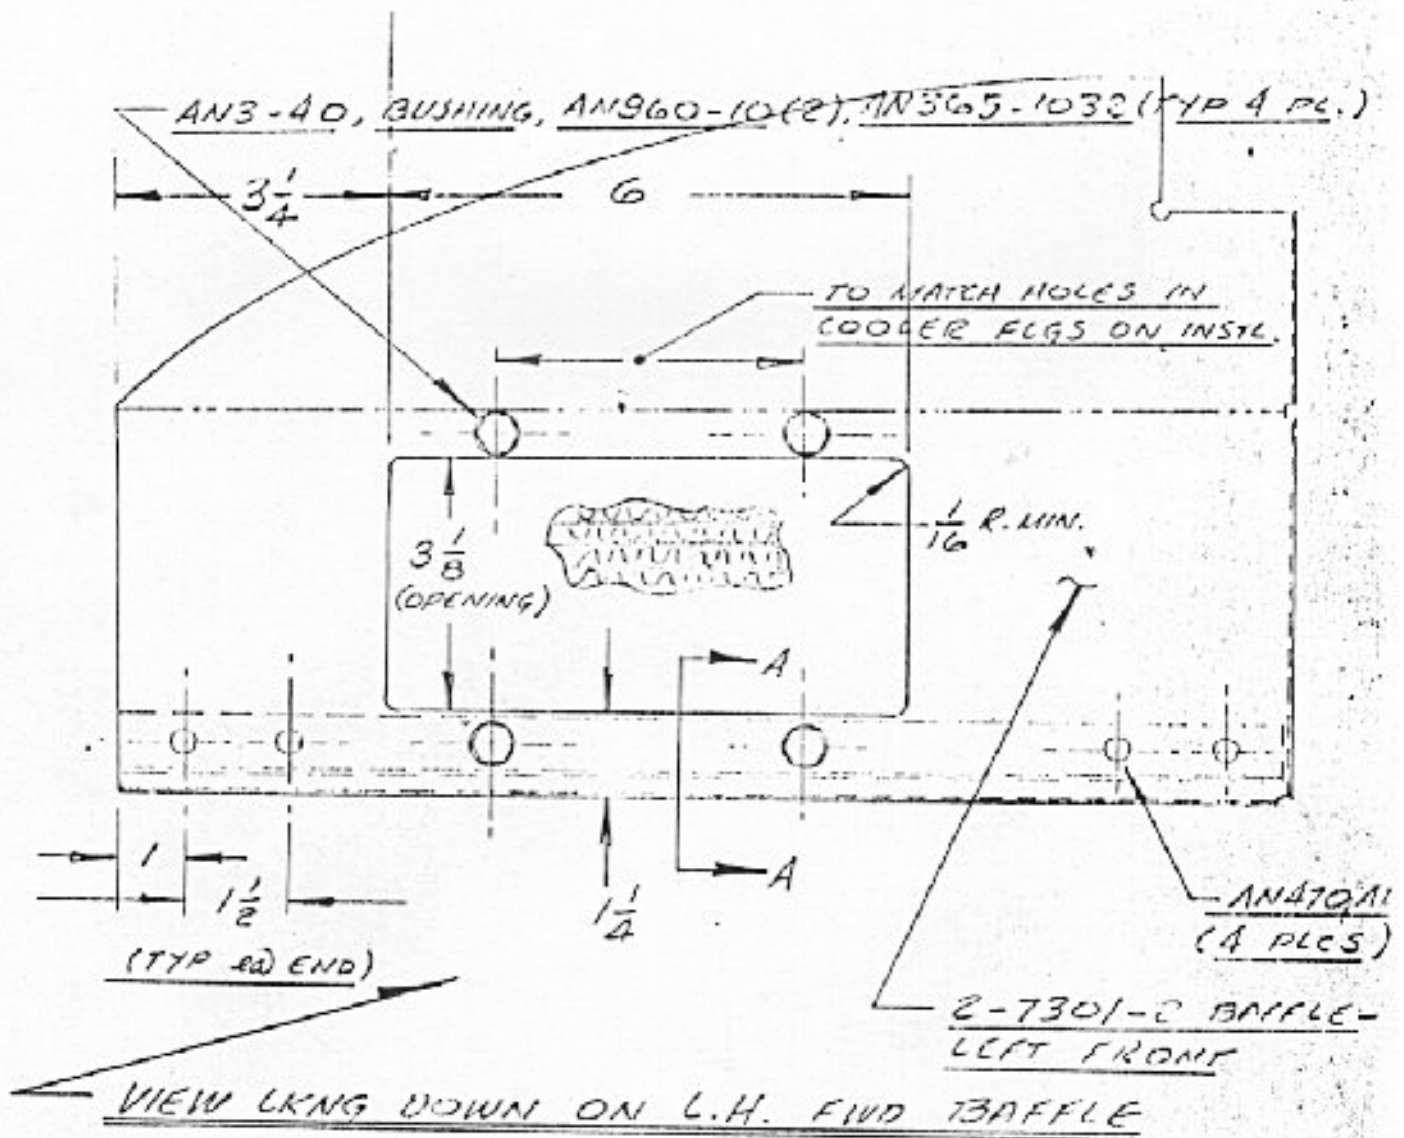 AN3-40, BUSHING, AN960-10(2), AN365-1032 (TYP 4 PL.)
3 1/4
6
TO MATCH HOLES IN
COOLER FLGS ON INSTL.
3 1/8
(OPENING)
1/16 R. MIN.
A
A
1
1 1/2
1 1/4
(TYP ea END)
AN470A1
(4 PLCS)
2-7301-2 BAFFLE-
LEFT FRONT
VIEW LKNG DOWN ON L.H. FWD BAFFLE